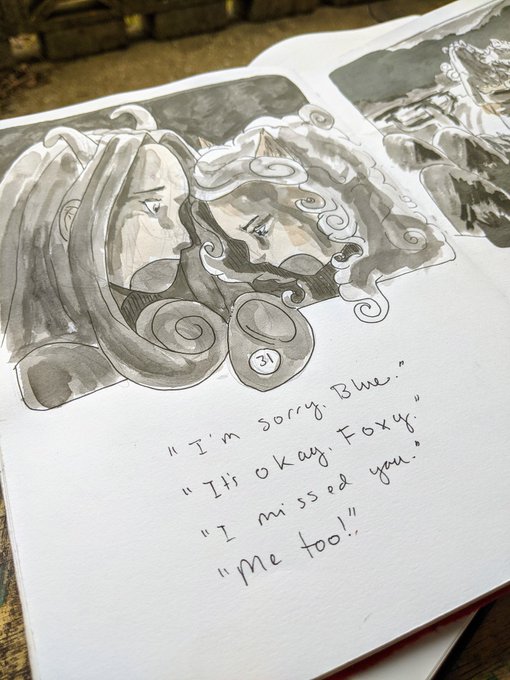 31
"I'm sorry, Blue."
"It's okay, Foxy."
"I missed you."
"Me too!"